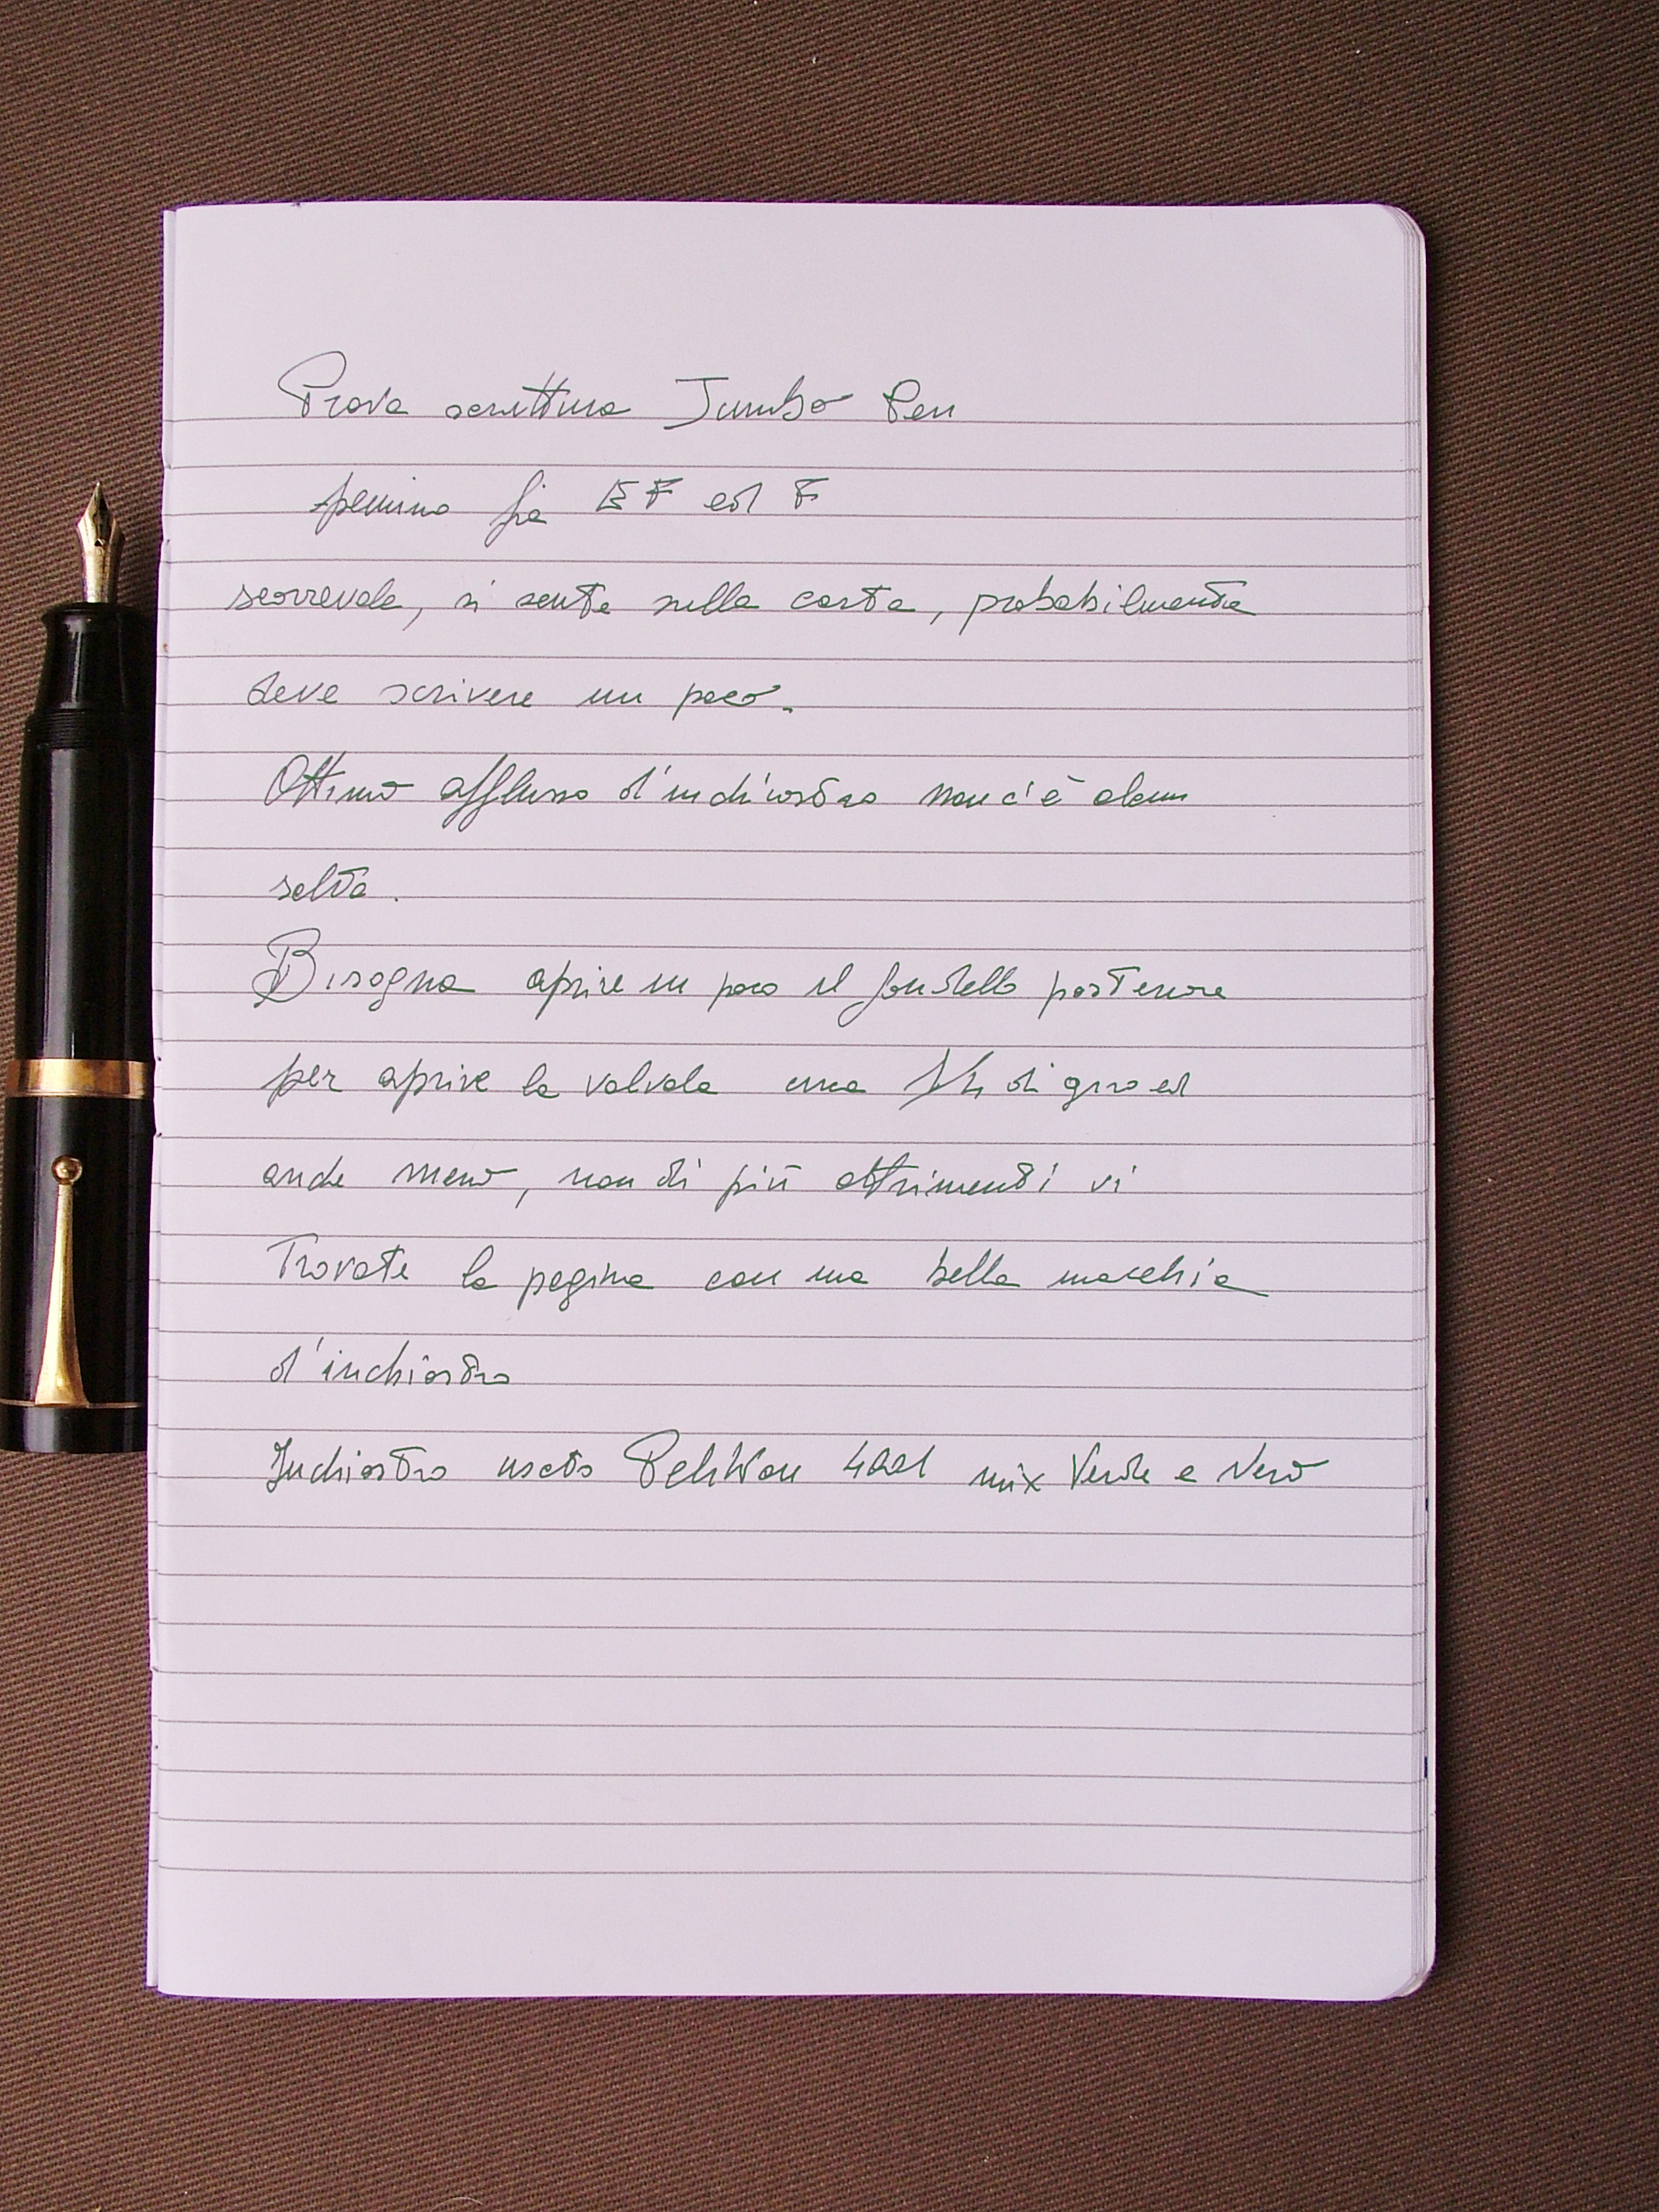 Prova scrittura Jumbo Pen
pennino fra EF ed F
scorrevole, si sente sulla carta, probabilmente
deve scrivere un poco.
Ottimo afflusso d'inchiostro non c'è alcun
salto.
Bisogna aprire un poco il fondello posteriore
per aprire la valvola una 1/4 di giro ed
anche meno, non di più altrimenti vi
Trovate la pagina con una bella macchia
d'inchiostro
Inchiostro usato Pelikan 4001 mix Verde e Nero